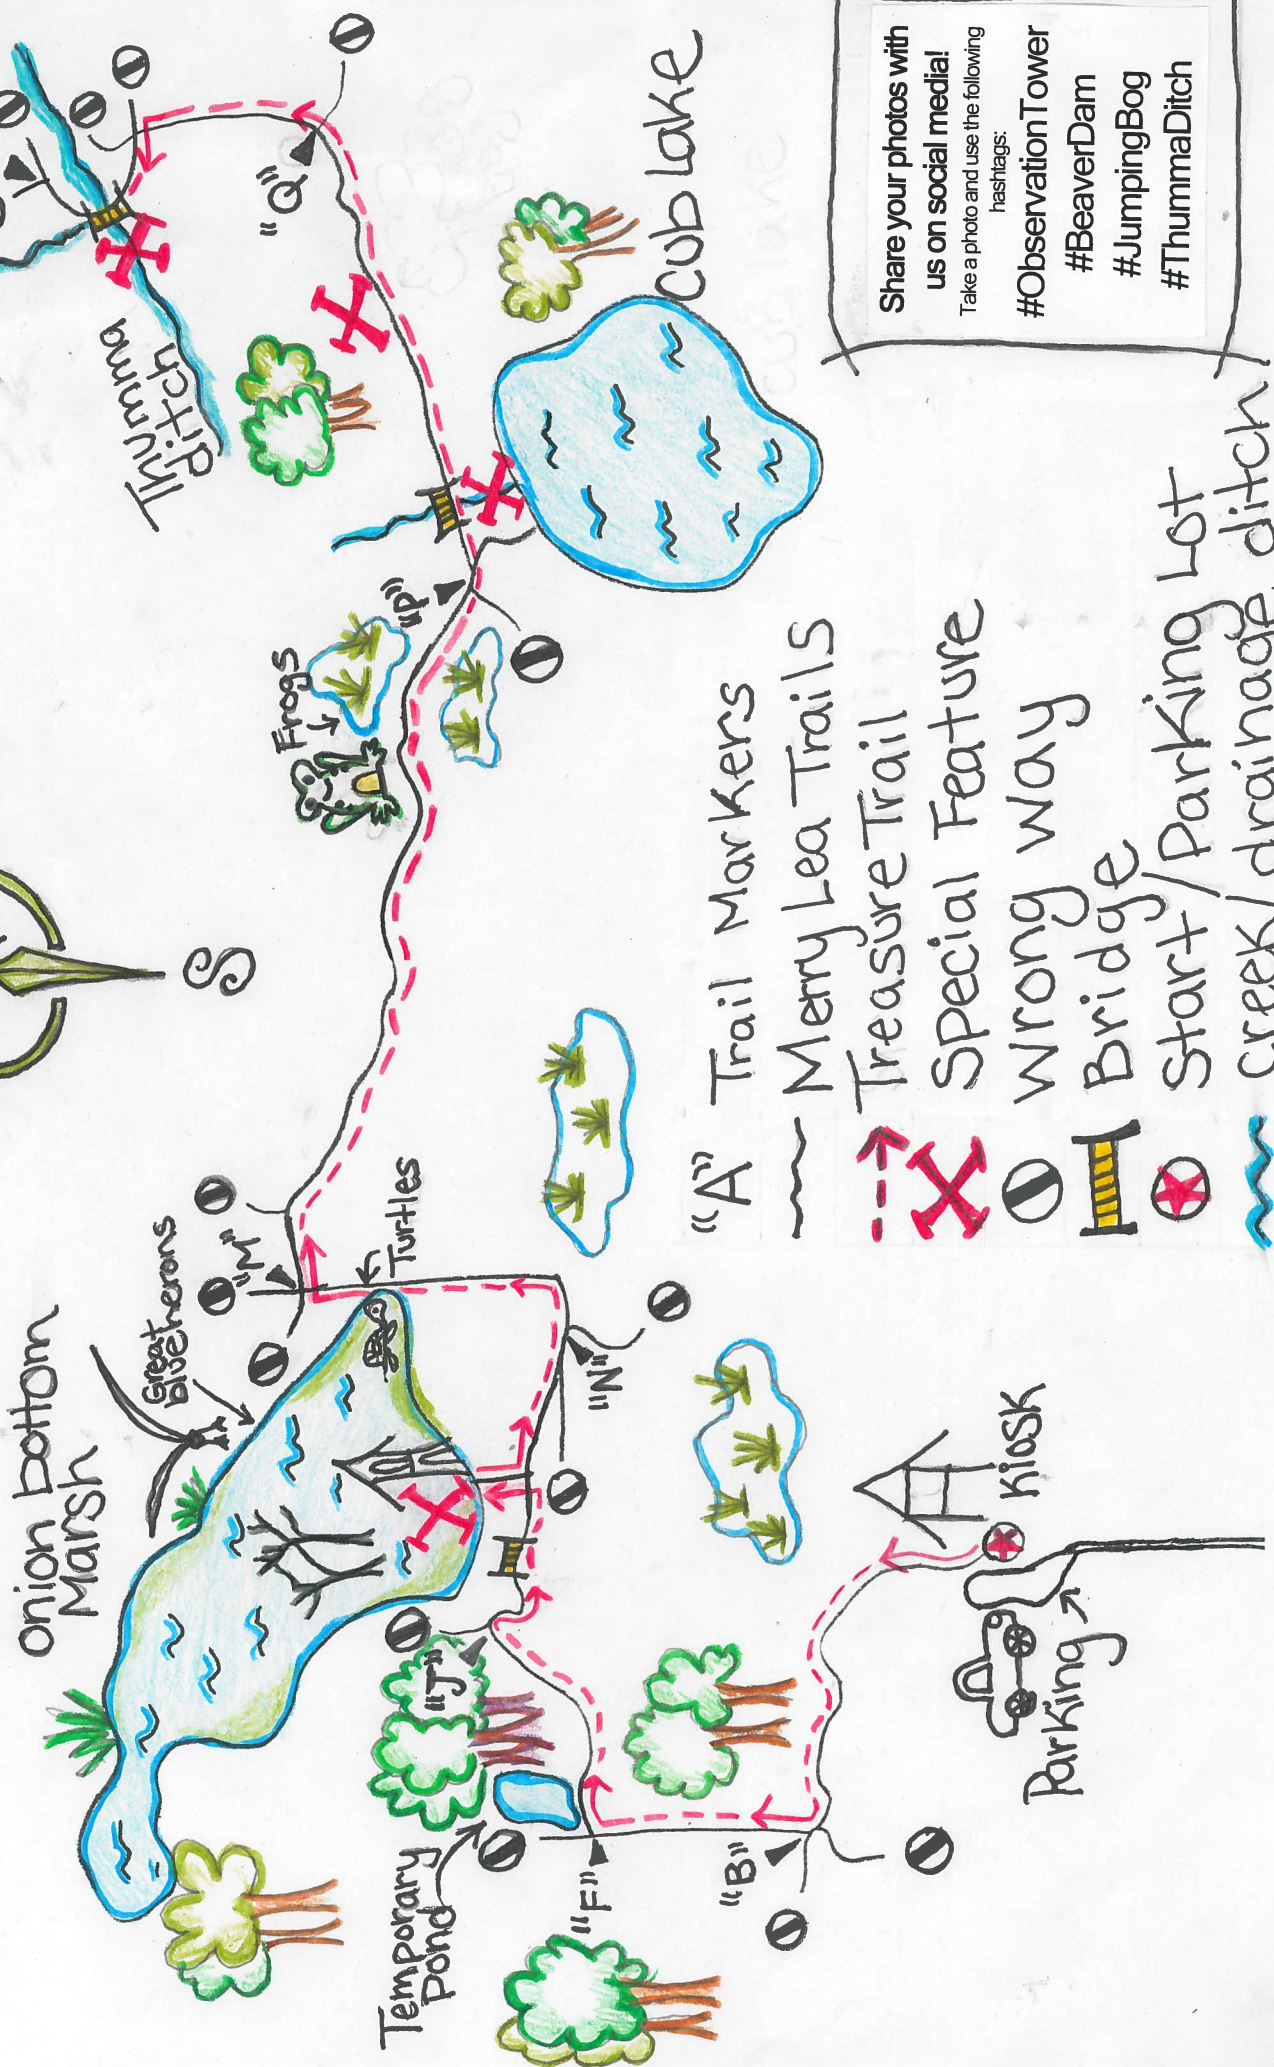 Onion bottom
Marsh
Great
blue herons
"M"
Turtles
S
Frogs
"P"
Thumma
ditch
"Q"
Cub Lake
Temporary
Pond
"J"
"F"
"B"
"N"
Kiosk
Parking
"A" Trail Markers
Merry Lea Trails
Treasure Trail
Special Feature
Wrong Way
Bridge
Start/Parking Lot
Creek/drainage ditch
Share your photos with
us on social media!
Take a photo and use the following
hashtags:
#ObservationTower
#BeaverDam
#JumpingBog
#ThummaDitch